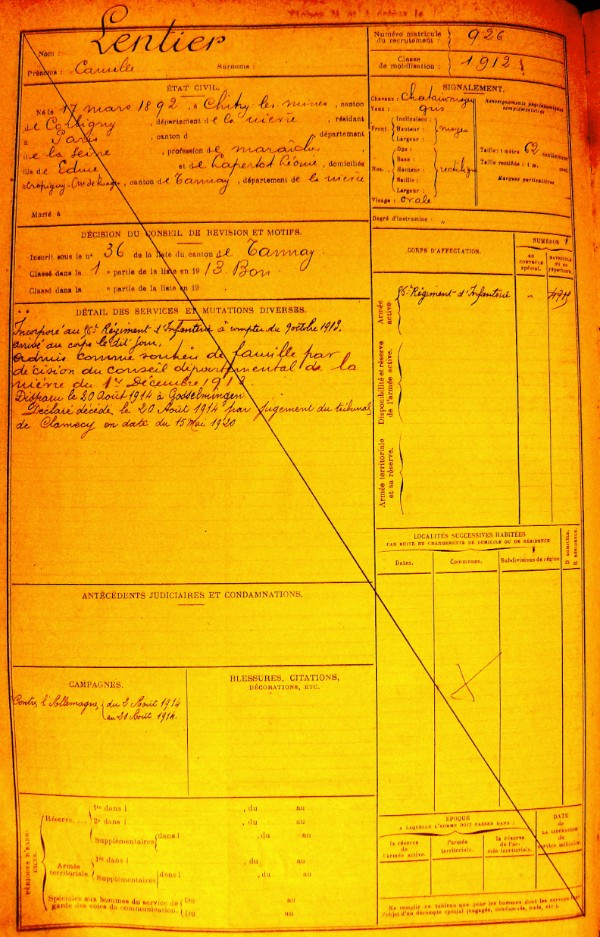 Nom : Lentier
Prénoms : Camille Surnoms :
Numéro matricule du recrutement : 926
Classe de mobilisation : 1912
ÉTAT CIVIL.
Né le 17 mars 1892, à Chitry les mines, canton
de Corbigny, département de la nièvre, résidant
à Paris, canton d département
de la Seine, profession de
fils de Edme et de , domiciliés
à , canton de Tannay, département de la nièvre
Marié à
SIGNALEMENT.
Cheveux : Chatain moyen
Yeux : gris
Renseignements physionomiques complémentaires
Front. Inclinaison :
Hauteur : moyen
Largeur :
Nez. Dos :
Base : rectiligne
Hauteur :
Saillie :
Largeur :
Visage : Ovale
Taille : 1 mètre 62 centimètres
Taille rectifiée : 1 m.
Marques particulières
Degré d'instruction : "
DÉCISION DU CONSEIL DE RÉVISION ET MOTIFS.
Inscrit sous le n° 36 de la liste du canton de Tannay
Classé dans la 1 e partie de la liste en 1913 Bon
Classé dans la e partie de la liste en 19
CORPS D'AFFECTATION.
NUMÉROS
AU CONTRÔLE spécial.
MATRICULE OU AU répertoire.
Armée active.
95e Régiment d'Infanterie "
Disponibilité et réserve de l'armée active.
Armée territoriale et sa réserve.
DÉTAIL DES SERVICES ET MUTATIONS DIVERSES.
Incorporé au 95e Régiment d'Infanterie à compter du 9 octobre 1913.
arrivé au corps le dit jour.
admis comme soutien de famille par
décision du conseil départemental de la
nièvre du 1er Décembre 1913
Disparu le 20 Août 1914 à Gosselmingen
Déclaré décédé le 20 Août 1914 par jugement du tribunal
de Clamecy en date du 15 Mai 1920
LOCALITÉS SUCCESSIVES HABITÉES
PAR SUITE DE CHANGEMENTS DE DOMICILE OU DE RÉSIDENCE
Dates. Communes. Subdivisions de région D. DOMICILE. R. RÉSIDENCE.
ANTÉCÉDENTS JUDICIAIRES ET CONDAMNATIONS.
CAMPAGNES.
Contre l'Allemagne, du 2 Août 1914
au 20 Août 1914.
BLESSURES, CITATIONS,
DÉCORATIONS, ETC.
PÉRIODES D'EXERCICES.
Réserve
1re dans l , du au
2e dans l , du au
Supplémentaires dans l , du au
Armée territoriale
1re dans l , du au
Supplémentaires dans l , du au
Spéciales aux hommes du service de garde des voies de communication. Du au
Du au
ÉPOQUE
A LAQUELLE L'HOMME DOIT PASSER DANS :
la réserve de l'armée active.
l'armée territoriale.
la réserve de l'armée territoriale.
DATE de LA LIBÉRATION du service militaire.
Ne remplir ce tableau que pour les hommes dont les services font
l'objet d'un décompte spécial (engagés, condamnés, omis, etc.).